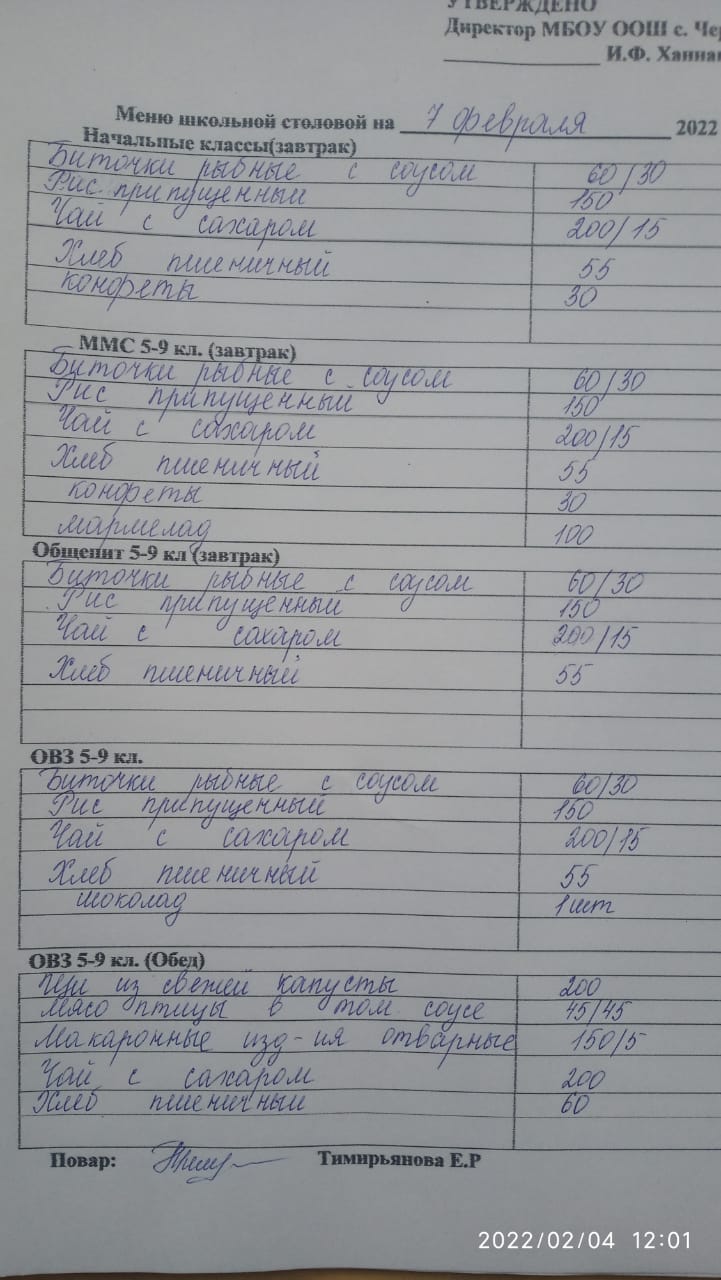 УТВЕРЖДЕНО
Директор МБОУ ООШ с. Чер
И.Ф. Ханна
Меню школьной столовой на 7 февраля 2022
Начальные классы(завтрак)
Биточки рыбные с соусом 60/30
Рис припущенный 150
Чай с сахаром 200/15
Хлеб пшеничный 55
конфеты 30
ММС 5-9 кл. (завтрак)
Биточки рыбные с соусом 60/30
Рис припущенный 150
Чай с сахаром 200/15
Хлеб пшеничный 55
конфеты 30
мармелад 100
Общепит 5-9 кл (завтрак)
Биточки рыбные с соусом 60/30
Рис припущенный 150
Чай с сахаром 200/15
Хлеб пшеничный 55
ОВЗ 5-9 кл.
Биточки рыбные с соусом 60/30
Рис припущенный 150
Чай с сахаром 200/15
Хлеб пшеничный 55
шоколад 1шт
ОВЗ 5-9 кл. (Обед)
Щи из свежей капусты 200
Мясо птицы в том соусе 45/45
Макаронные изд-ия отварные 150/5
Чай с сахаром 200
Хлеб пшеничный 60
Повар: Тимирьянова Е.Р
2022/02/04 12:01